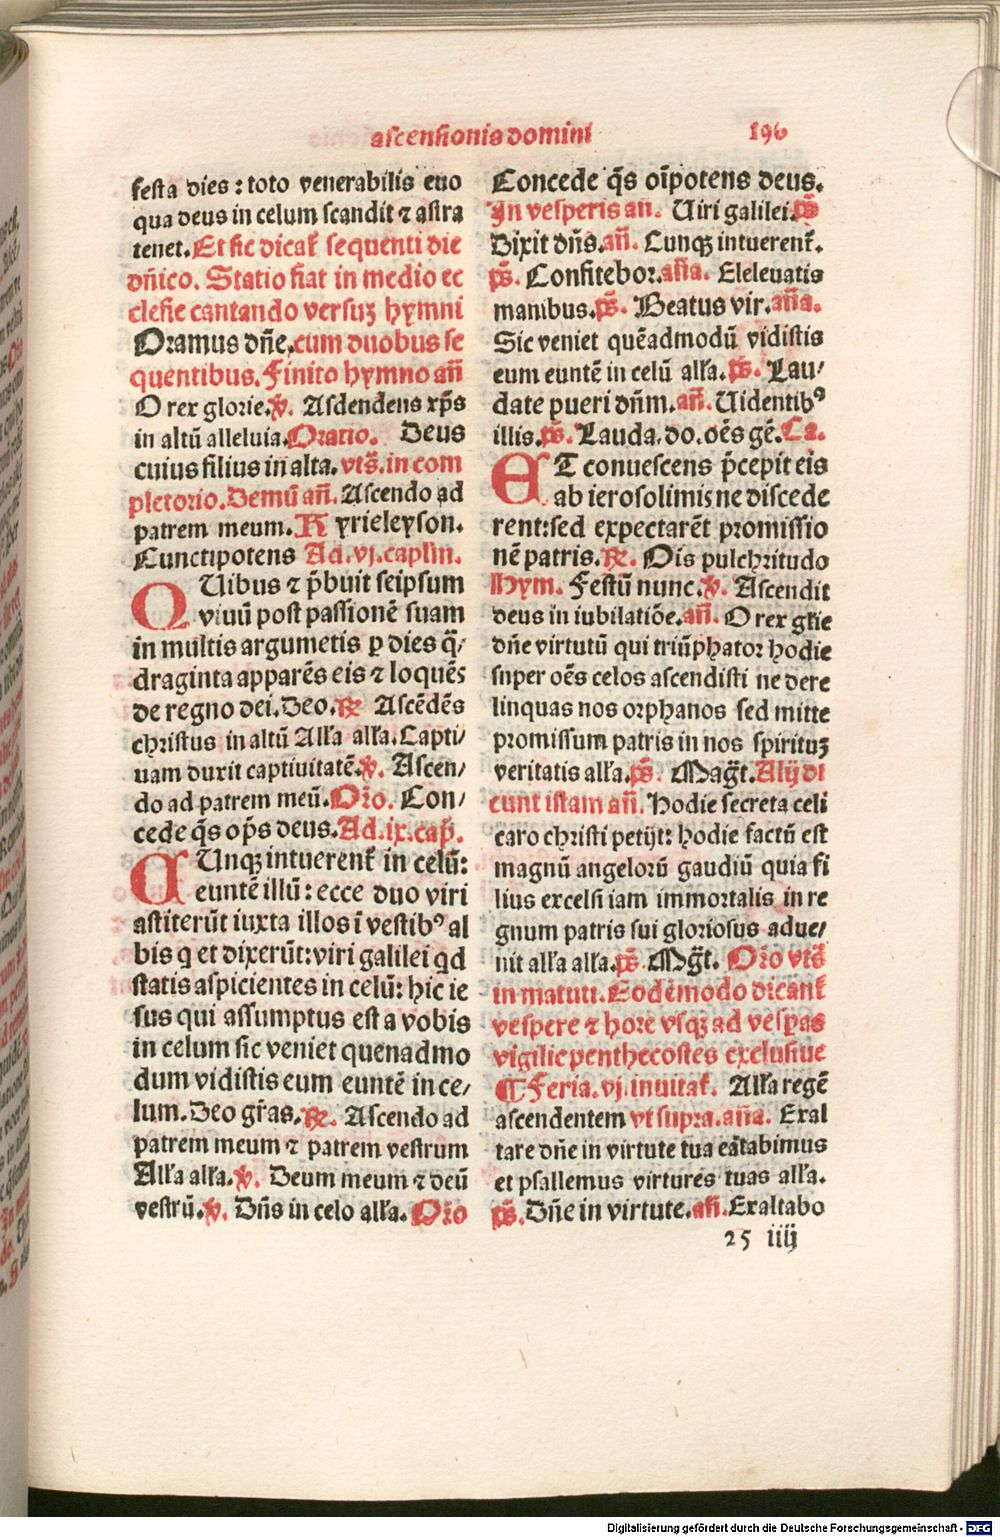 ascensionis domini 196
festa dies : toto venerabilis euo
qua deus in celum scandit ⁊ astra
tenet. Et sic dicat᷑ sequenti die
dñico. Statio fiat in medio ec
clesie cantando versuꝫ hymni
Oramus dñe. cum duobus se
quentibus. Finito hymno añ
O rex glorie. ℣. Asdendens xp̄s
in altū alleluia. Oratio. Deus
cuius filius in alta. vts̄. in com
pletorio. Demū añ. Ascendo ad
patrem meum. Kyrieleyson.
Cunctipotens Ad. vj. caplm̄.
QUibus ⁊ p̄buit seipsum
viuū post passionē suam
in multis argumetis ꝑ dies q̄/
draginta apparēs eis ⁊ loquēs
de regno dei. Deo. ℟ Ascēdēs
christus in altū Alla alla. Capti/
uam duxit captiuitatē. ℣. Ascen/
do ad patrem meū. Oro. Con/
cede q̄s op̄s deus. Ad. ix. cap̄.
CUnqꝫ intuerent᷑ in celū:
euntē illū : ecce duo viri
astiterūt iuxta illos ī vestibꝰ al
bis q et dixerūt: viri galilei qd
statis aspicientes in celū: hic ie
sus qui assumptus est a vobis
in celum sic veniet quenadmo
dum vidistis eum euntē in ce/
lum. Deo gr̄as. ℟. Ascendo ad
patrem meum ⁊ patrem vestrum
Alla alla. ℣. Deum meum ⁊ deū
vestrū. ℣. Dñs in celo alla. Oro
Concede q̄s oīpotens deus.
Jn vesperis an. Uiri galilei. p̄s
Dixit dñs. añ. Cunqꝫ intuerent᷑.
p̄s. Confitebor. aña. Eleleuatis
manibus. p̄s. Beatus vir. aña.
Sic veniet quēadmodū vidistis
eum euntē in celū alla. p̄s. Lau/
date pueri dñm. añ. Uidentibꝰ
illis. p̄s. Lauda. do. oēs gē. Ca.
ET conuescens p̄cepit eis
ab ierosolimis ne discede
rent: sed expectarēt promissio
nē patris. ℟. Ois pulchritudo
Hym. Festū nunc. ℣. Ascendit
deus in iubilatiōe. añ. O rex glie
dñe virtutū qui triūphator hodie
super oēs celos ascendisti ne dere
linquas nos orphanos sed mitte
promissum patris in nos spirituꝫ
veritatis alla. p̄s. Mag̃t. Alij di
cunt istam añ. Hodie secreta celi
caro christi petijt: hodie factū est
magnū angelorū gaudiū quia fi
lius excelsi iam immortalis in re
gnum patris sui gloriosus adue/
nit alla alla. p̄s. Mag̃t. Oro vts̄
in matuti. Eodēmodo dicant᷑
vespere ⁊ hore vsqꝫ ad vesp̄as
vigilie penthecostes exclusiue
¶ Feria. vj. inuitat᷑. Alla regē
ascendentem vt supra. aña. Exal
tare dñe in virtute tua cātabimus
et psallemus virtutes tuas alla.
p̄s. Dñe in virtute. añ. Exaltabo
25 iiij
Digitalisierung gefördert durch die Deutsche Forschungsgemeinschaft - DFG